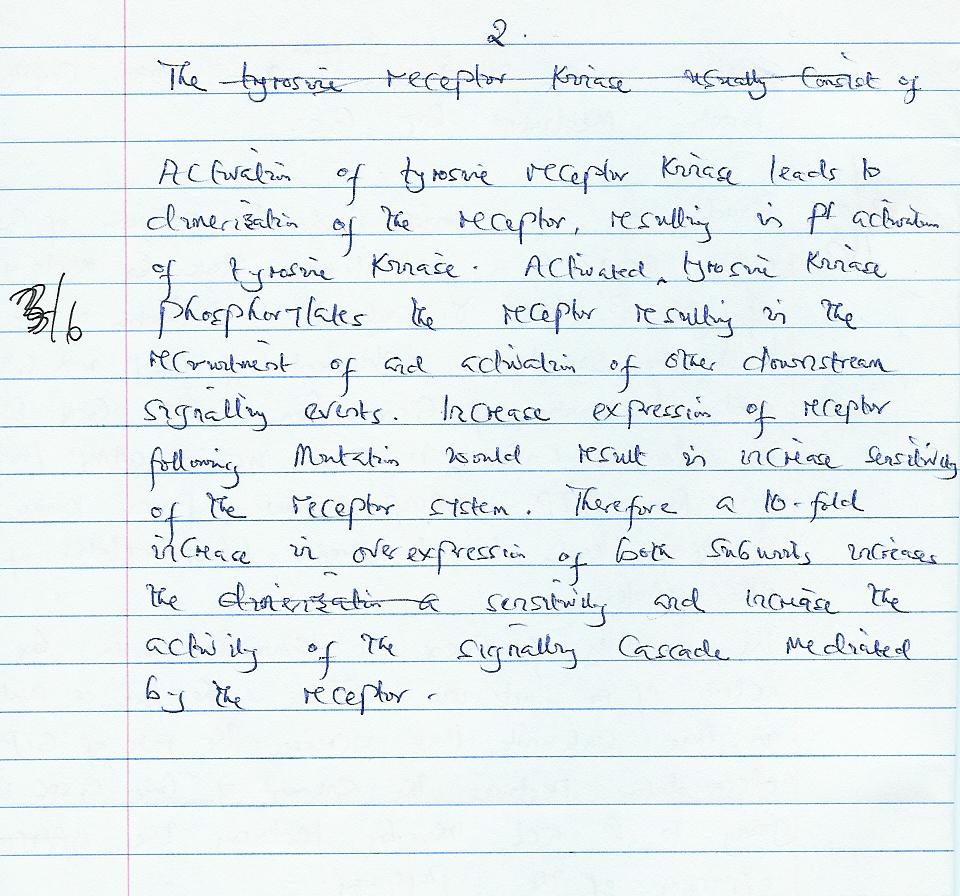 2.
The tyrosine receptor Kinase usually Consist of
Activation of tyrosine receptor Kinase leads to
dimerization of the receptor, resulting in pt activation
of tyrosine Kinase. Activated tyrosine Kinase
phosphorylates the receptor resulting in the
recruitment of and activation of other downstream
signalling events. Increase expression of receptor
following Mutation would result in increase sensitivity
of the receptor system. Therefore a 10-fold
increase in over expression of both subunits increases
the dimerization a sensitivity and increase the
activity of the signalling Cascade mediated
by the receptor.
/6